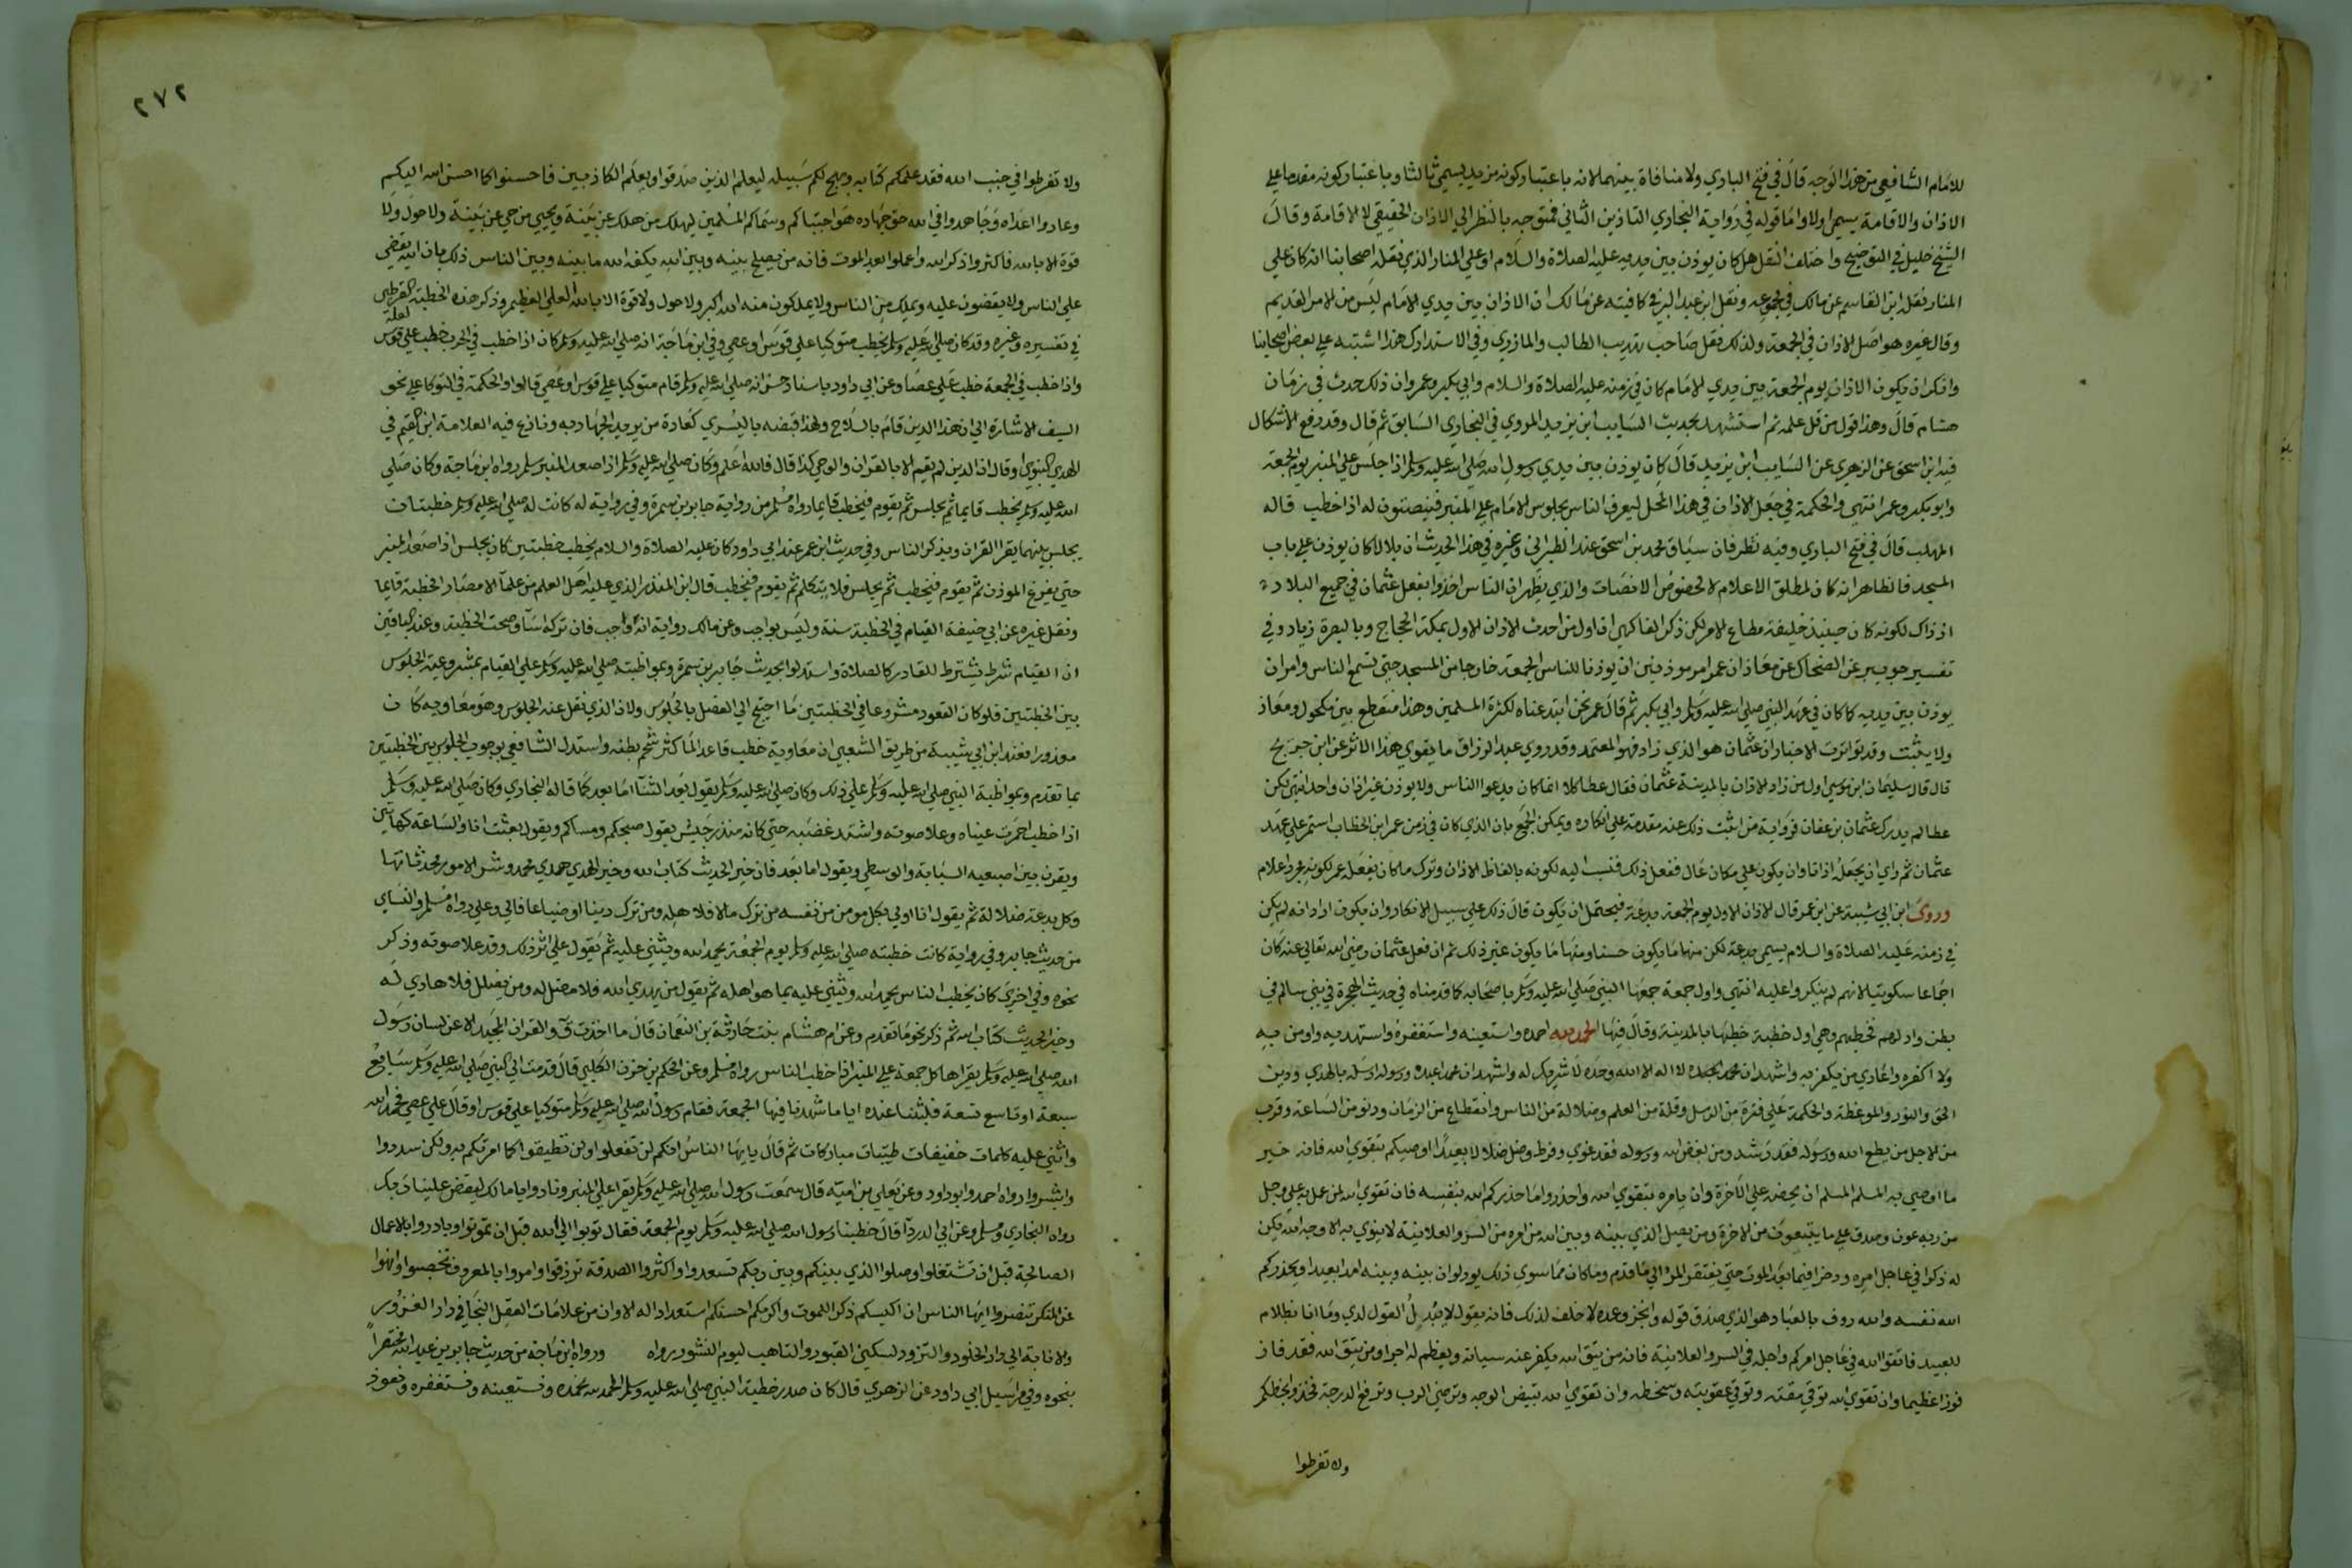 للامام الشافعي من هذا الوجه قال في فتح الباري ولا منافاة بينهما لانه باعتبار كونه مزيد يسمي ثالثا وباعتبار كونه مقدما علي
الاذان والاقامة يسمي اولا واما قوله في رواية البخاري التاذين الثاني فمتوجه بالنظر الي الاذان الحقيقي لا الاقامة وقال
الشيخ خليل في التوضيح واختلف النقل هل كان يوذن بين يديه عليه الصلاة والسلام او علي المنار الذي نقله اصحابنا انه كان علي
المنار نقله ابن القاسم عن مالك في المجموعه ونقل ابن عبد البر في كافيته عن مالك ان الاذان بين يدي الامام ليس من الامر القديم
وقال غيره هو اصل الاذان في الجمعة ولذلك نقل صاحب تهذيب الطالب والمازري وفي الاستذكار هذا اشتبه علي بعض اصحابنا
وانكر ان يكون الاذان يوم الجمعة بين يدي الامام كان في زمنه عليه الصلاة والسلام وابي بكر وعمر وان ذلك حدث في زمان
هشام قال وهذا قول من قل علمه ثم استشهد بحديث السايب ابن يزيد المروي في البخاري السابق ثم قال وقد رفع الاشكال
فيه ابن اسحق عن الزهري عن السايب ابن يزيد قال كان يوذن بين يدي رسول الله صلي الله عليه وسلم اذا جلس علي المنبر يوم الجمعة
وابو بكر وعمر انتهي والحكمة في جعل الاذان في هذا المحل ليعرف الناس بجلوس الامام علي المنبر فينصتون له اذا خطب قاله
المهلب قال في فتح الباري وفيه نظر فان سياق محمد بن اسحق عند الطبراني وغيره في هذا الحديث ان بلالا كان يوذن علي باب
المسجد فالظاهر انه كان لمطلق الاعلام لا لخصوص الانصات والذي يظهر ان الناس اخذوا بفعل عثمان في جميع البلاد
اذ ذاك لكونه كان حينيذ خليفة مطاع الامر لكن ذكر الفاكهي ان اول من احدث الاذان الاول بمكة الحجاج وبالبصرة زياد وفي
تفسير جويبر عن الضحاك عن معاذ ان عمر امر موذنين ان يوذنا للناس الجمعة خارجا من المسجد حتي تسمع الناس وامر ان
يوذن بين يديه كما كان في عهد النبي صلي الله عليه وسلم وابي بكر ثم قال عمر نحن ابتدعناه لكثرة المسلمين وهذا منقطع بين مكحول ومعاذ
ولا يثبت وقد تواترت الاخبار ان عثمان هو الذي زاد فهو المعتمد وقد روي عبد الرزاق ما يقوي هذا الاثر عن ابن جريج
قال قال سليمان ابن موسي اول من زاد الاذان بالمدينة عثمان فقال عطا كلا انما كان يدعو الناس ولا يوذن غير اذان واحد انتهي لكن
عطا لم يدرك عثمان بن عفان فرواية من اثبت ذلك عنه مقدمة علي انكاره ويمكن الجمع بان الذي كان في زمن عمر ابن الخطاب استمر علي عهد
عثمان ثم راي ان يجعله اذانا وان يكون علي مكان عال ففعل ذلك فنسب اليه لكونه بالفاظ الاذان وترك ما كان يفعله عمر لكونه مجرد اعلام
وروي ابن ابي شيبة عن ابن عمر قال الاذان الاول يوم الجمعة بدعة فيحتمل ان يكون قال ذلك علي سبيل الانكار وان يكون اراد انه لم يكن
في زمنه عليه الصلاة والسلام يسمي بدعة لكن منها ما يكون حسنا ومنها ما يكون غير ذلك ثم ان فعل عثمان رضي الله تعالي عنه كان
اجماعا سكوتيا لانهم لم ينكروا عليه انتهي واول جمعة جمعها النبي صلي الله عليه وسلم باصحابه كما قدمناه في حديث الهجرة في بني سالم في
بطن واد لهم فخطبهم وهي اول خطبة خطبها بالمدينة وقال فيها الحمد لله احمده واستعينه واستغفره واستهديه واومن به
ولا اكفره واعادي من يكفر به واشهد ان لا اله الا الله وحده لا شريك له واشهد ان محمدا عبده ورسوله ارسله بالهدي ودين
الحق والنور والموعظة والحكمة علي فترة من الرسل وقلة من العلم وضلالة من الناس وانقطاع من الزمان ودنو من الساعة وقرب
من الاجل من يطع الله ورسوله فقد رشد ومن يعص الله ورسوله فقد غوي وفرط وضل ضلالا بعيدا اوصيكم بتقوي الله فانه خير
ما اوصي به المسلم المسلم ان يحضه علي الاخرة وان يامره بتقوي الله واحذروا ما حذركم الله بنفسه فان تقوي الله لمن عمل به علي وجل
من ربه عون وصدق علي ما يبتغون من الاخرة ومن يصل الذي بينه وبين الله من امره من السر والعلانية لا ينوي به الا وجه الله يكن
له ذكرا في عاجل امره وذخرا فيما بعد الموت حتي يفتقر المر الي ما قدم وما كان مما سوي ذلك يود لو ان بينه وبينه امدا بعيدا ويحذركم
الله نفسه والله روف بالعباد هو الذي صدق قوله وانجز وعده لا خلف لذلك فانه يقول لا يبدل القول لدي وما انا بظلام
للعبيد فاتقوا الله في عاجل امركم واجله في السر والعلانية فانه من يتق الله يكفر عنه سياته ويعظم له اجرا ومن يتق الله فقد فاز
فوزا عظيما وان تقوي الله توقي مقته وتوقي عقوبته وسخطه وان تقوي الله تبيض الوجه وترضي الرب وترفع الدرجة فخذوا بحظكم
ولا تفرطوا
٢٧٢
ولا تفرطوا في جنب الله فقد علمكم كتابه ونهج لكم سبيله ليعلم الذين صدقوا ويعلم الكاذبين فاحسنوا كما احسن الله اليكم
وعادوا اعداه وجاهدوا في الله حق جهاده هو اجتباكم وسماكم المسلمين ليهلك من هلك عن بينة ويحيي من حي عن بينة ولا حول ولا
قوة الا بالله فاكثروا ذكر الله واعملوا بعد الموت فانه من يصلح بينه وبين الله يكفه الله ما بينه وبين الناس ذلك بان الله يقضي
علي الناس ولا يقضون عليه ويملك من الناس ولا يملكون منه الله اكبر ولا حول ولا قوة الا بالله العلي العظيم وذكر هذه الخطبة القرطبي
في تفسيره وغيره وقد كان صلي الله عليه وسلم يخطب متوكيا علي قوس او عصي وفي ابن ماجة انه صلي الله عليه وسلم كان اذا خطب في الحرب خطب علي قوس
واذا خطب في الجمعة خطب علي عصا وعن ابي داود باسناد حسن انه صلي الله عليه وسلم قام متوكيا علي قوس او عصي قالوا والحكمة في التوكا علي نحو
السيف الاشارة الي ان هذا الدين قام بالسلاح ولهذا قبضه باليسري كعادة من يريد الجهاد به ونازع فيه العلامة ابن القيم في
الهدي النبوي وقال ان الدين لم يقم الا بالقران والوحي كذا قال فالله اعلم وكان صلي الله عليه وسلم اذا صعد المنبر سلم رواه ابن ماجة وكان صلي
الله عليه وسلم يخطب قايما ثم يجلس ثم يقوم فيخطب قايما رواه مسلم من رواية جابر بن سمرة وفي رواية له كانت له صلي الله عليه وسلم خطبتان
يجلس بينهما يقرا القران ويذكر الناس وفي حديث ابن عمر عند ابي داود كان عليه الصلاة والسلام يخطب خطبتين كان يجلس اذا صعد المنبر
حتي يفرغ الموذن ثم يقوم فيخطب ثم يجلس فلا يتكلم ثم يقوم فيخطب قال ابن المنذر الذي عليه اهل العلم من علما الامصار الخطبة قايما
ونقل غيره عن ابي حنيفة القيام في الخطبة سنة وليس بواجب وعن مالك رواية انه واجب فان تركه اسا وصحت الخطبة وعند الباقين
ان القيام شرط يشترط للقادر كالصلاة واستدلوا بحديث جابر بن سمرة وبمواظبته صلي الله عليه وسلم علي القيام بمشروعية الجلوس
بين الخطبتين فلو كان القعود مشروعا في الخطبتين ما احتيج الي الفصل بالجلوس ولان الذي نقل عنه الجلوس وهو معاوية كان
معذورا فعند ابن ابي شيبة من طريق الشعبي ان معاوية خطب قاعدا لما كثر شحم بطنه واستدل الشافعي بوجوب الجلوس بين الخطبتين
بما تقدم وبمواظبة النبي صلي الله عليه وسلم علي ذلك وكان صلي الله عليه وسلم يقول بعد الثنا اما بعد كما قاله البخاري وكان صلي الله عليه وسلم
اذا خطب احمرت عيناه وعلا صوته واشتد غضبه حتي كانه منذر جيش يقول صبحكم ومساكم ويقول بعثت انا والساعة كهاتين
ويقرن بين اصبعيه السبابة والوسطي ويقول اما بعد فان خير الحديث كتاب الله وخير الهدي هدي محمد وشر الامور محدثاتها
وكل بدعة ضلالة ثم يقول انا اولي بكل مومن من نفسه من ترك مالا فلاهله ومن ترك دينا او ضياعا فالي وعلي رواه مسلم والنساي
من حديث جابر وفي رواية كانت خطبته صلي الله عليه وسلم يوم الجمعة يحمد الله ويثني عليه ثم يقول علي اثر ذلك وقد علا صوته وذكر
نحوه وفي اخري كان يخطب الناس يحمد الله ويثني عليه بما هو اهله ثم يقول من يهدي الله فلا مضل له ومن يضلل فلا هادي له
وخير الحديث كتاب الله ثم ذكر نحو ما تقدم وعن ام هشام بنت حارثة بن النعمان قال ما اخذت ق والقران المجيد الا عن لسان رسول
الله صلي الله عليه وسلم يقراها كل جمعة علي المنبر اذا خطب الناس رواه مسلم وعن الحكم بن حزن الكلبي قال قدمت الي النبي صلي الله عليه وسلم سابع
سبعة او تاسع تسعة فلبثنا عنده اياما شهدنا فيها الجمعة فقام رسول الله صلي الله عليه وسلم متوكيا علي قوس او قال علي عصي فحمد الله
واثني عليه كلمات خفيفات طيبات مباركات ثم قال يايها الناس انكم لن تفعلوا ولن تطيقوا كلما امرتكم به ولكن سددوا
وابشروا رواه احمد وابو داود وعن يعلي بن امية قال سمعت رسول الله صلي الله عليه وسلم يقرا علي المنبر ونادوا يا مالك ليقض علينا ربك
رواه البخاري ومسلم وعن ابي الدردا قال خطبنا رسول الله صلي الله عليه وسلم يوم الجمعة فقال توبوا الي الله قبل ان تموتوا وبادروا بالاعمال
الصالحة قبل ان تشتغلوا وصلوا الذي بينكم وبين ربكم تسعدوا واكثروا الصدقة ترزقوا وامروا بالمعروف تخصبوا وانهوا
عن المنكر تنصروا ايها الناس ان اكيسكم اكثركم ذكرا للموت واكرمكم احسنكم استعدادا له الا وان من علامات العقل التجافي دار الغرور
والانابة الي دار الخلود والتزود لسكني القبور والتاهب ليوم النشور رواه ورواه ابن ماجة من حديث جابر بن عبد الله مختصرا
نحوه وفي مراسيل ابي داود عن الزهري قال كان صدر خطبة النبي صلي الله عليه وسلم الحمد لله نحمده ونستعينه ونستغفره ونعوذ